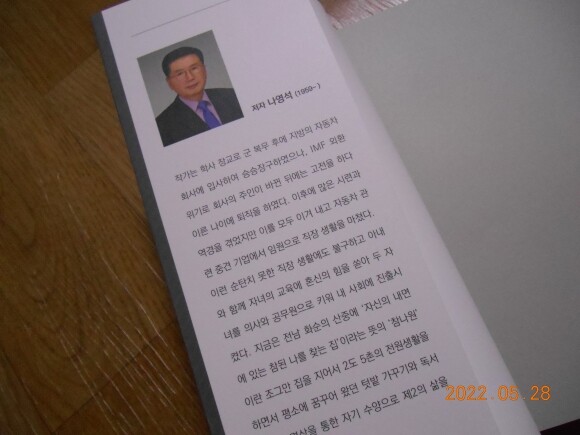 저자 나영석 (1959~)
작가는 학사 장교로 군 복무 후에 지방의 자동차
회사에 입사하여 승승장구하였으나, IMF 외환
위기로 회사의 주인이 바뀐 뒤에는 고전을 하다
이른 나이에 퇴직을 하였다. 이후에 많은 시련과
역경을 겪었지만 이를 모두 이겨 내고 자동차 관
련 중견 기업에서 임원으로 직장 생활을 마쳤다.
이런 순탄치 못한 직장 생활에도 불구하고 아내
와 함께 자녀의 교육에 혼신의 힘을 쏟아 두 자
녀를 의사와 공무원으로 키워 내 사회에 진출시
켰다. 지금은 전남 화순의 산중에 '자신의 내면
에 있는 참된 나를 찾는 집'이라는 뜻의 '참나원'
이란 조그만 집을 지어서 2도 5촌의 전원생활을
하면서 평소에 꿈꾸어 왔던 텃밭 가꾸기와 독서
명상을 통한 자기 수양으로 제2의 삶을
2022.05.28